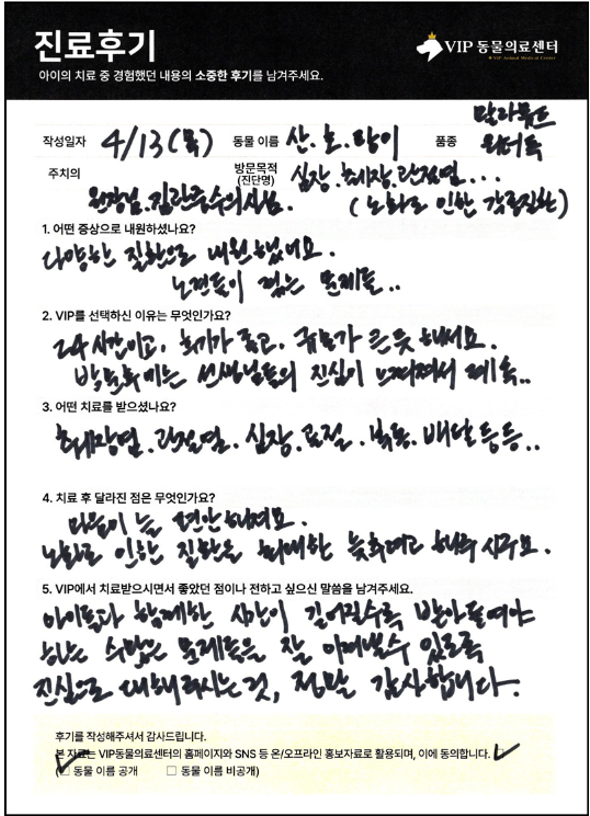 진료후기
아이의 치료 중 경험했던 내용의 소중한 후기를 남겨주세요.
VIP 동물의료센터
VIP Animal Medical Center
작성일자 4/13(목) 동물 이름 산.호.랑이 품종 말라뮤트
주치의 원장님.김란중수의사님.
방문목적 (진단명) 심장.췌장.관절염...
(노화로 인한 각종질환)
1. 어떤 증상으로 내원하셨나요?
다양한 질환으로 내원했어요.
노견들이 겪는 문제들..
2. VIP를 선택하신 이유는 무엇인가요?
24시간이고, 후기가 좋고, 규모가 큰듯 해서요.
방문후에는 선생님들의 진심이 느껴져서 계속..
3. 어떤 치료를 받으셨나요?
췌장염.관절염.심장. 등등..
4. 치료 후 달라진 점은 무엇인가요?
마음이 늘 편안해져요.
노화로 인한 질환을 최대한 늦추려고 해주시구요.
5. VIP에서 치료받으시면서 좋았던 점이나 전하고 싶으신 말씀을 남겨주세요.
아이들과 함께한 시간이 길어질수록 받아들여야
하는 수많은 문제들을 잘 이겨낼수 있도록
진심으로 대해주시는것, 정말 감사합니다.
후기를 작성해주셔서 감사드립니다.
본 자료는 VIP동물의료센터의 홈페이지와 SNS 등 온/오프라인 홍보자료로 활용되며, 이에 동의합니다. ☑
(☑ 동물 이름 공개 □ 동물 이름 비공개)